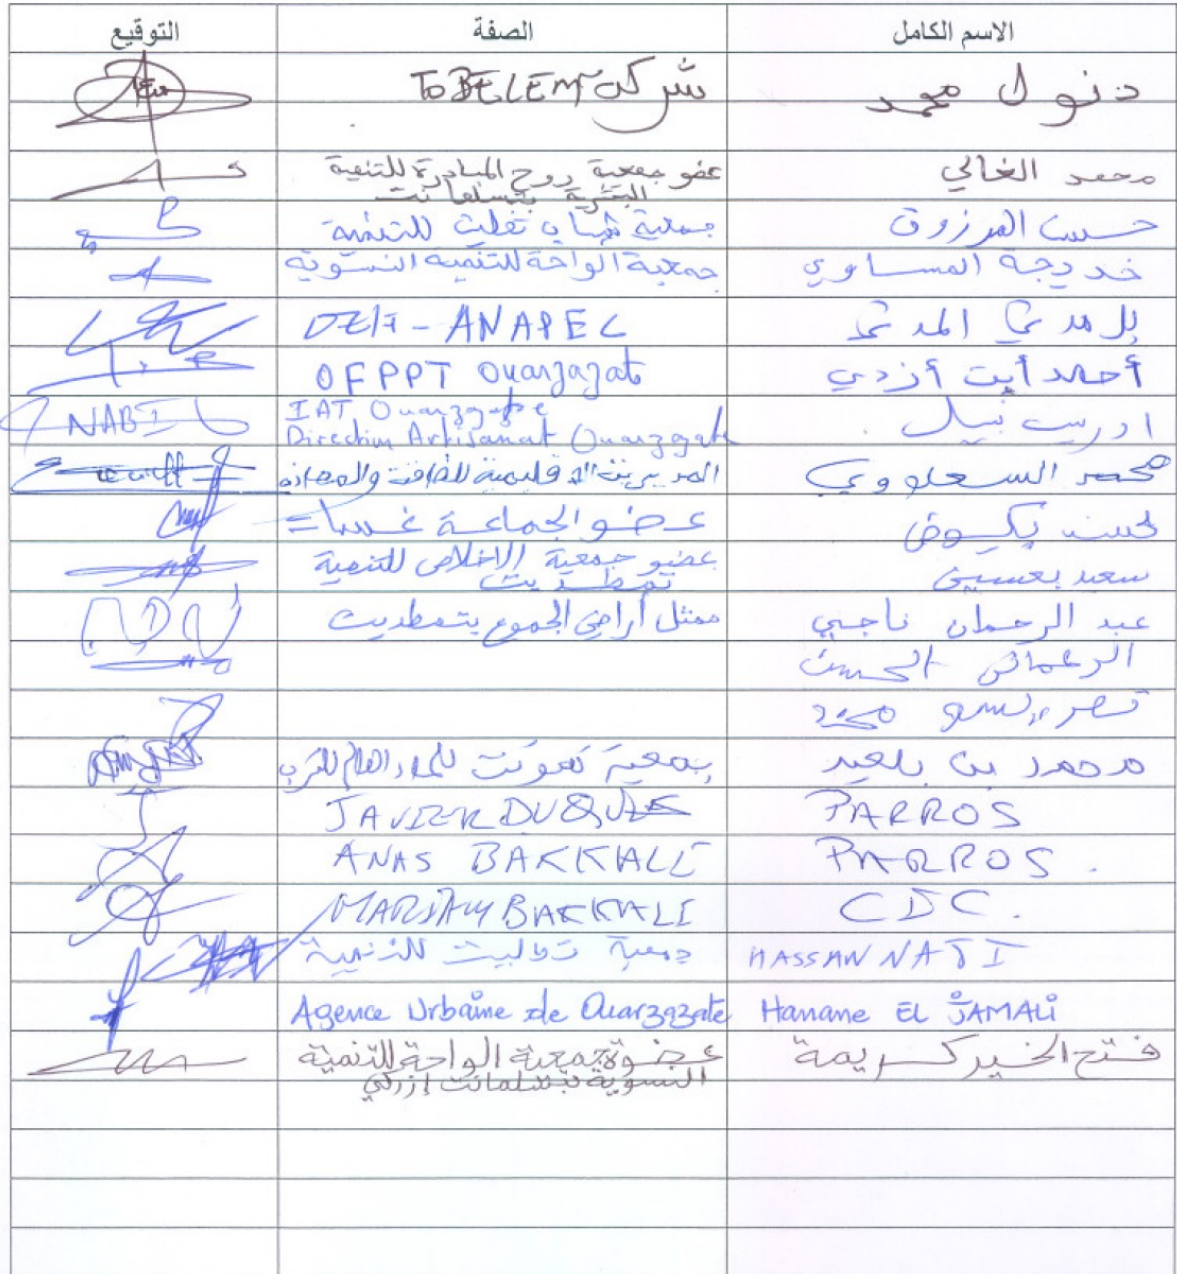 الاسم الكامل الصفة التوقيع
دنول محمد شركة TOBELEM
محمد الغالي عضو جمعية روح المبادرة للتنمية
البشرية بتسلمانت
حسن المرزوق جمعية شباب تفليت للتنمية
خديجة المساوي جمعية الواحة للتنمية النسوية
ANAPEC
أحمد أيت أزدي OFPPT Ouarzazate
ادريس نبيل IAT Ouarzazate NABIL
Direction Artisanat Ouarzazate
محمد السعلووي المديرية الاقليمية للثقافة
لحسن يكسوض عضو الجماعة غسات
سعيد بعسيس عضو جمعية الاخلاص للتنمية
تمطديت
عبد الرحمان ناجي ممثل أراضي الجموع بتمطديت
الحسن
محمد
محمد بن بلعيد جمعية للماء
PARROS JAVIER DUQUE
PARROS. ANAS BAKKALI
CDC. MARIAM BAKKALI
HASSAN NAJI جمعية للتنمية
Hanane EL JAMALI Agence Urbaine de Ouarzazate
فتح الخير كريمة عضوة جمعية الواحة للتنمية
النسوية بتسلمانت إزركي